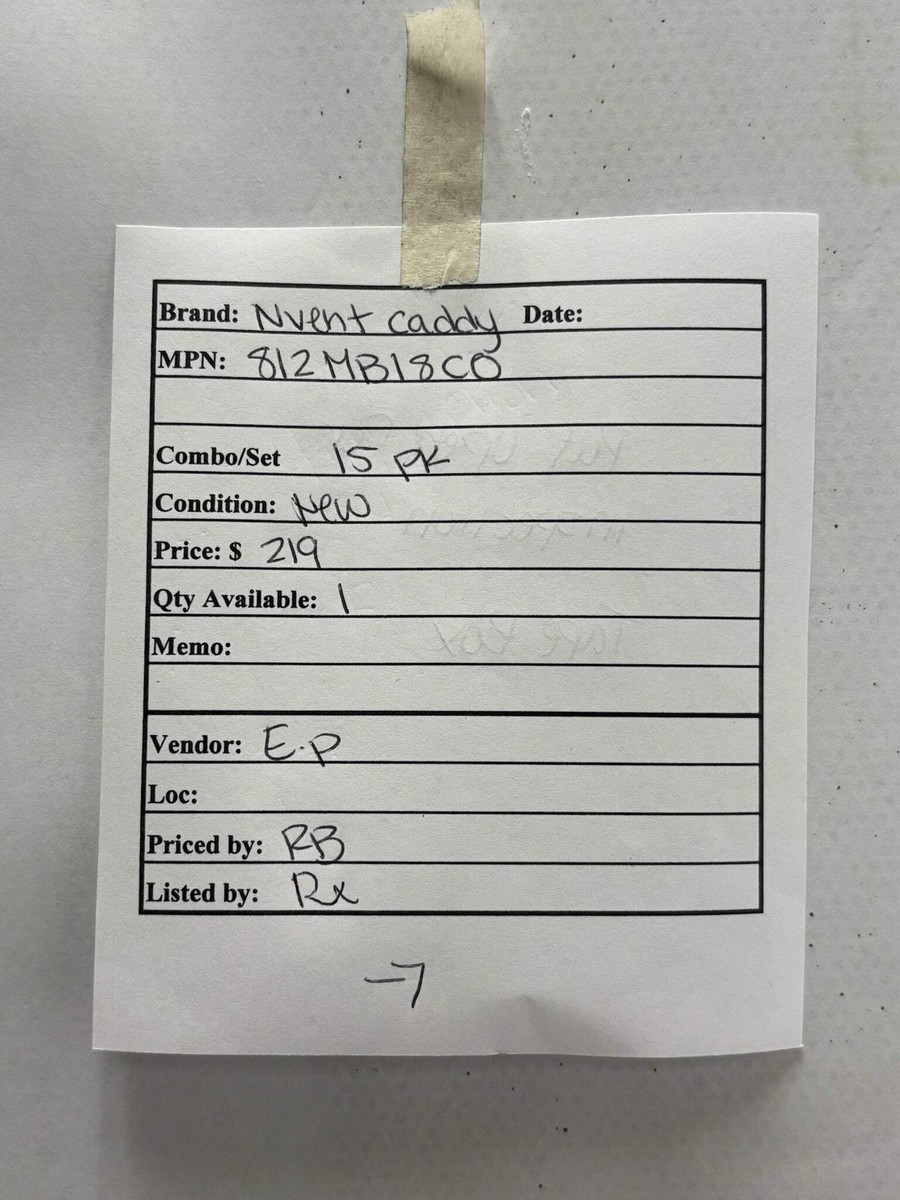 Brand: Nvent caddy Date:
MPN: 812MB18CO
Combo/Set 15 pk
Condition: New
Price: $ 219
Qty Available: 1
Memo:
Vendor: E.P
Loc:
Priced by: RB
Listed by: Rx
-7